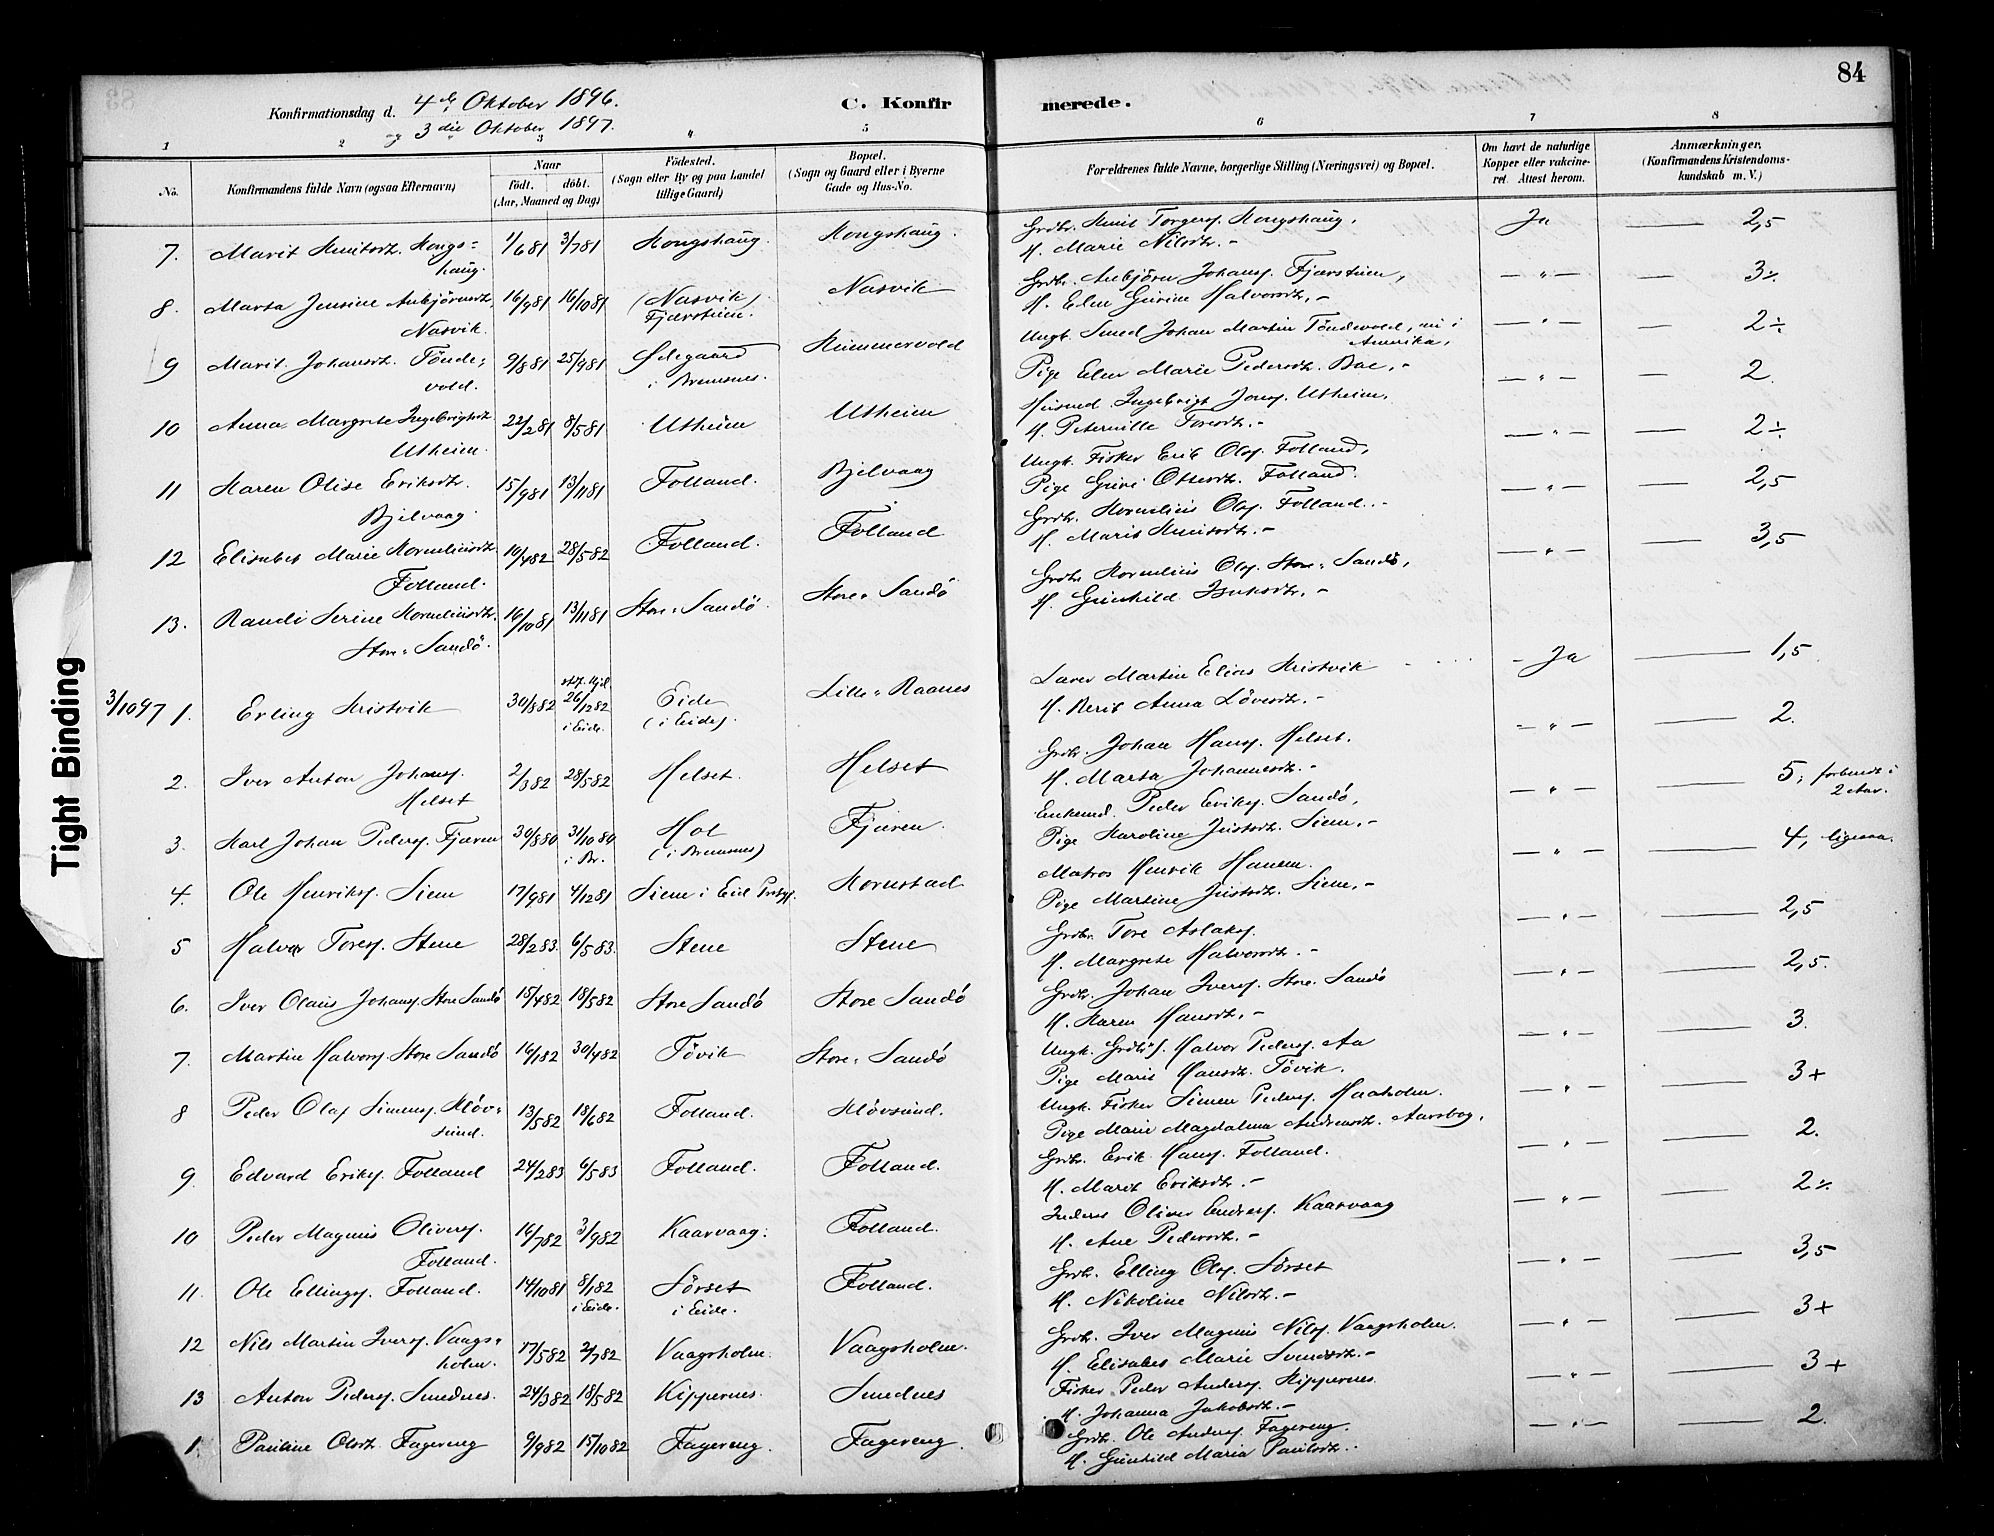 84
Konfirmationsdag d. 4de Oktober 1896.
og 3die Oktober 1897.
C. Konfirmerede.
1 2 3 4 5 6 7 8
No. Konfirmandens fulde Navn (ogsaa Efternavn) Naar födt. döbt. (Aar, Maaned og Dag) Födested. (Sogn eller By og paa Landet tillige Gaard) Bopæl. (Sogn og Gaard eller i Byerne Gade og Hus-No. Forældrenes fulde Navne, borgerlige Stilling (Næringsvei) og Bopæl. Om havt de naturlige Kopper eller vakcineret. Attest herom. Anmærkninger. (Konfirmandens Kristendomskundskab m. V.)
7. Marit Knutsdt. Kongshaug. 1/6 81 3/7 81 Kongshaug. Kongshaug. Grdbr. Knut Torgers. Kongshaug, Ja — 2,5
H. Marie Nilsdt. -
8. Marta Jensine Anbjörnsdt. Nasvik. 16/9 81 16/10 81 (Nasvik) Fjærstuen. Nasvik Grdbr. Anbjörn Johans. Fjærstuen, — " — — 3÷
H. Elen Gurine Halvorsdt. -
9 Marit Johansdt. Töndevold. 9/8 81 25/9 81 Ödegaard i Bremsnes. Hummervold Ungk. Smed Johan Martin Töndevold, nu i Amerika, — " — — 2÷
Pige Elen Marie Pedersdt. Bae. - — " — — 2.
10 Anna Margrete Ingebrigtsdt. Utheim. 22/2 81 8/5 81 Utheim Utheim Husmd. Ingebrigt Jons. Utheim,
H. Peternille Toresdt. - — " — — 2÷
11 Karen Olise Eriksdt. Bjelvaag. 15/9 81 13/11 81 Folland. Bjelvaag Ungk. Fisker Erik Ols. Folland,
Pige Guri Ottersdt. Folland. — " — — 2,5
12 Elisabet Marie Korneliusdt. Folland. 10/4 82 28/5 82 Folland. Folland Grdbr. Kornelius Ols. Folland. -
H. Marit Knutsdt. - — " — — 3,5
13. Randi Serine Korneliusdt. Store-Sandö. 16/10 81 13/11 81 Store-Sandö. Store-Sandö Grdbr. Kornelius Ols. Store-Sandö,
H. Gunhild Isaksdt. -
3/10 97 1. Erling Kristvik 30/8 82 26/12 82 i Eide. Eide (i Eide). Lille-Raanes Lærer Martin Elias Kristvik - Ja — 1,5
H. Berit Anna Lövesdt. - — " — — 2.
2. Iver Anton Johans. Helset 2/3 82 28/5 82 Helset. Helset Grdbr. Johan Hans. Helset.
H. Marta Johannesdt. - — " — — 5, forberedt i 2 Aar.
3. Karl Johan Peders. Fjæren 30/8 80 31/10 80 i Br. Hol (i Bremsnes) Fjæren. Enkemd. Peder Eriks. Sandö,
Pige Karoline Justsdt. Siem. - — " — — 4, ligesaa.
4. Ole Henriks. Siem 17/9 81 4/12 81 Siem i Eid Prstgj. Kornstad Matros Henrik Hanem.
Pige Martine Justsdt. Siem. - — " — — 2,5
5 Halvor Tores. Stene 28/2 83. 6/5 83. Stene Stene Grdbr. Tore Aslaks.
H. Margrete Halvorsdt. - — " — — 2,5.
6. Iver Olaus Johans. Store Sandö 15/4 82 18/5 82 Store Sandö Store Sandö Grdbr. Johan Ivers. Store-Sandö
H. Karen Hansdt. - — " — — 3.
7. Martin Halvors. Store Sandö 16/1 82 30/4 82 Tövik Store-Sandö Ungk. Grdbr.s. Halvor Peders. Aa
Pige Marit Hansdt. Tövik. — " — — 3+
8 Peder Olaf Simens. Klövsund. 13/5 82 18/6 82 Folland. Klövsund. Ungk. Fisker Simen Peders. Haaholm.
Pige Marie Magdalena Andreasdt. Aarsbog. — " — — 2.
9. Edvard Eriks. Folland 24/2 83 6/5 83 Folland. Folland. Grdbr. Erik Hans. Folland.
H. Marit Eriksdt. - — " — — 2÷
10 Peder Magnus Olivers. Folland. 16/7 82 3/9 82 Kaarvaag. Folland. Inderst Oliver Endres. Kaarvaag
H. Ane Pedersdt. - — " — — 3,5
11. Ole Ellings. Folland. 14/10 81 8/1 82 i Eide. Sörset i Eide. Folland. Grdbr. Elling Ols. Sörset
H. Nikoline Nilsdt. - — " — — 3+
12 Nils Martin Ivers. Vaagsholm. 17/5 82 2/7 82 Vaagsholm. Vaagsholm. Grdbr. Iver Magnus Nils. Vaagsholm.
H. Elisabet Marie Svendsdt. - — " — — 3+
13 Anton Peders. Smednes. 24/3 82 18/5 82 Kippernes. Smednes Fisker Peder Anders. Kippernes.
H. Johanna Jakobsdt. - — " — — 2.
1. Pauline Olsdt. Fagereng 9/9 82 15/10 82 Fagereng. Fagereng. Grdbr. Ole Anders. Fagereng.
H. Gunhild Maria Paulsdt. -
Tight Binding